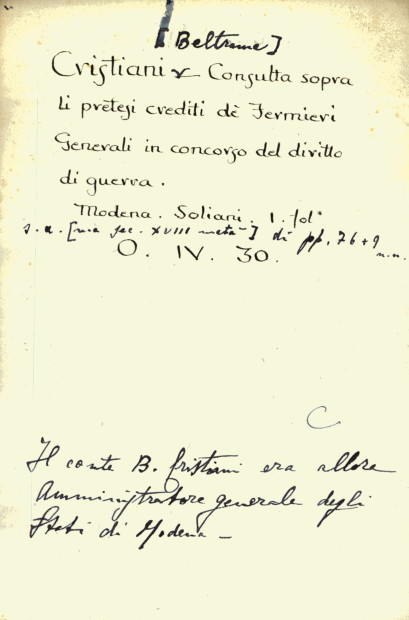 [Beltrame]
Cristiani Consulta sopra
li pretesi crediti de Fermieri
Generali in concorso del diritto
di guerra.
Modena. Soliani. 1. fol°
s. a. [ma sec. XVIII metà] di pp. 76 + 9 n.n.
O. IV. 30.
C
Il conte B. Cristiani era allora
Amministratore generale degli
Stati di Modena —